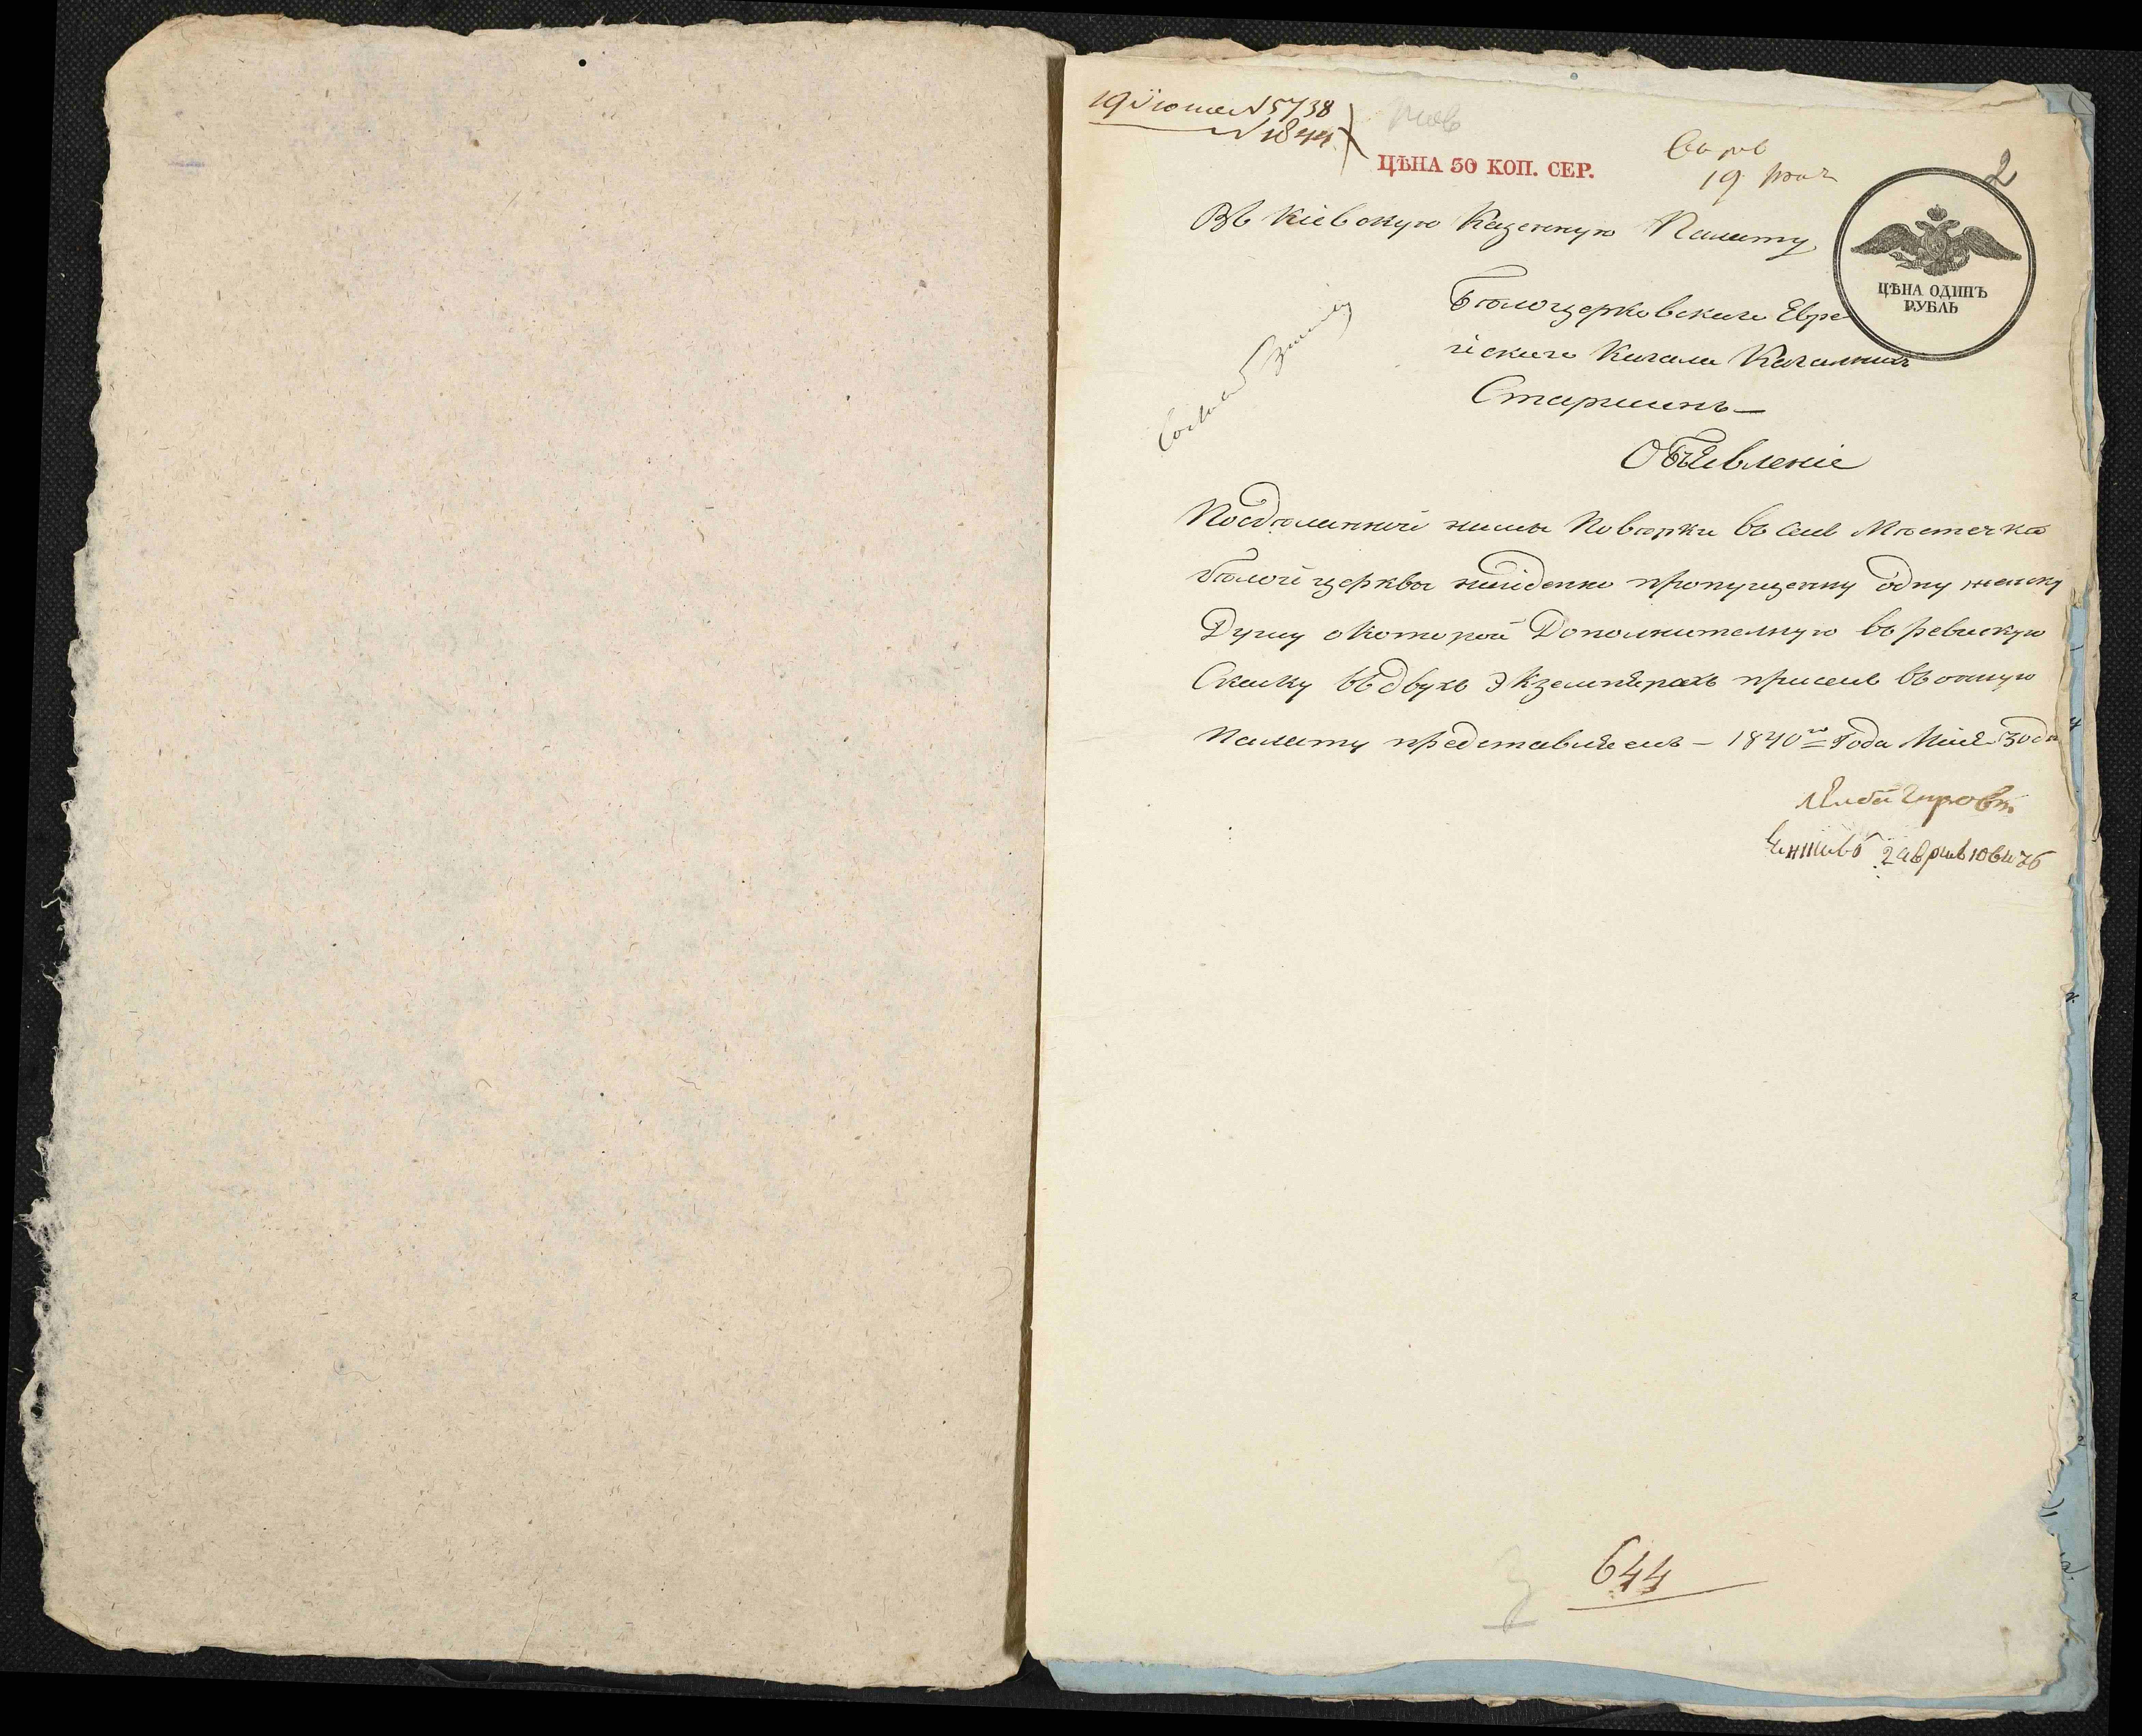 19 Июня N 5738
N 1844
ЦѢНА 30 КОП. СЕР.
19
2
ЦѢНА ОДИНЪ
РУБЛЬ
Въ Кіевскую Казенную Палату
Бѣлоцерковскаго Евре
йскаго Кагала Кагалныхъ
Старшинъ —
Объявленіе
Посдѣланной нами Повѣрки въ сей Мѣстечка
бѣлой церквы найденно пропущенну одну женску
Душу о Которой Дополнителную въ ревискую
Скаску въ двухъ Экземплярахъ присемъ въ оную
Палату представляемъ — 1840го Года Маія 30 дн
644